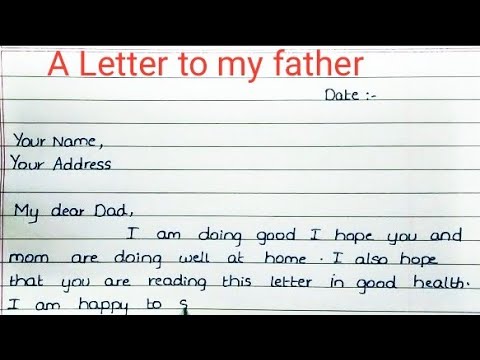 A Letter to my father
Date :-
Your Name,
Your Address
My dear Dad,
I am doing good I hope you and
mom are doing well at home. I also hope
that you are reading this letter in good health.
I am happy to s